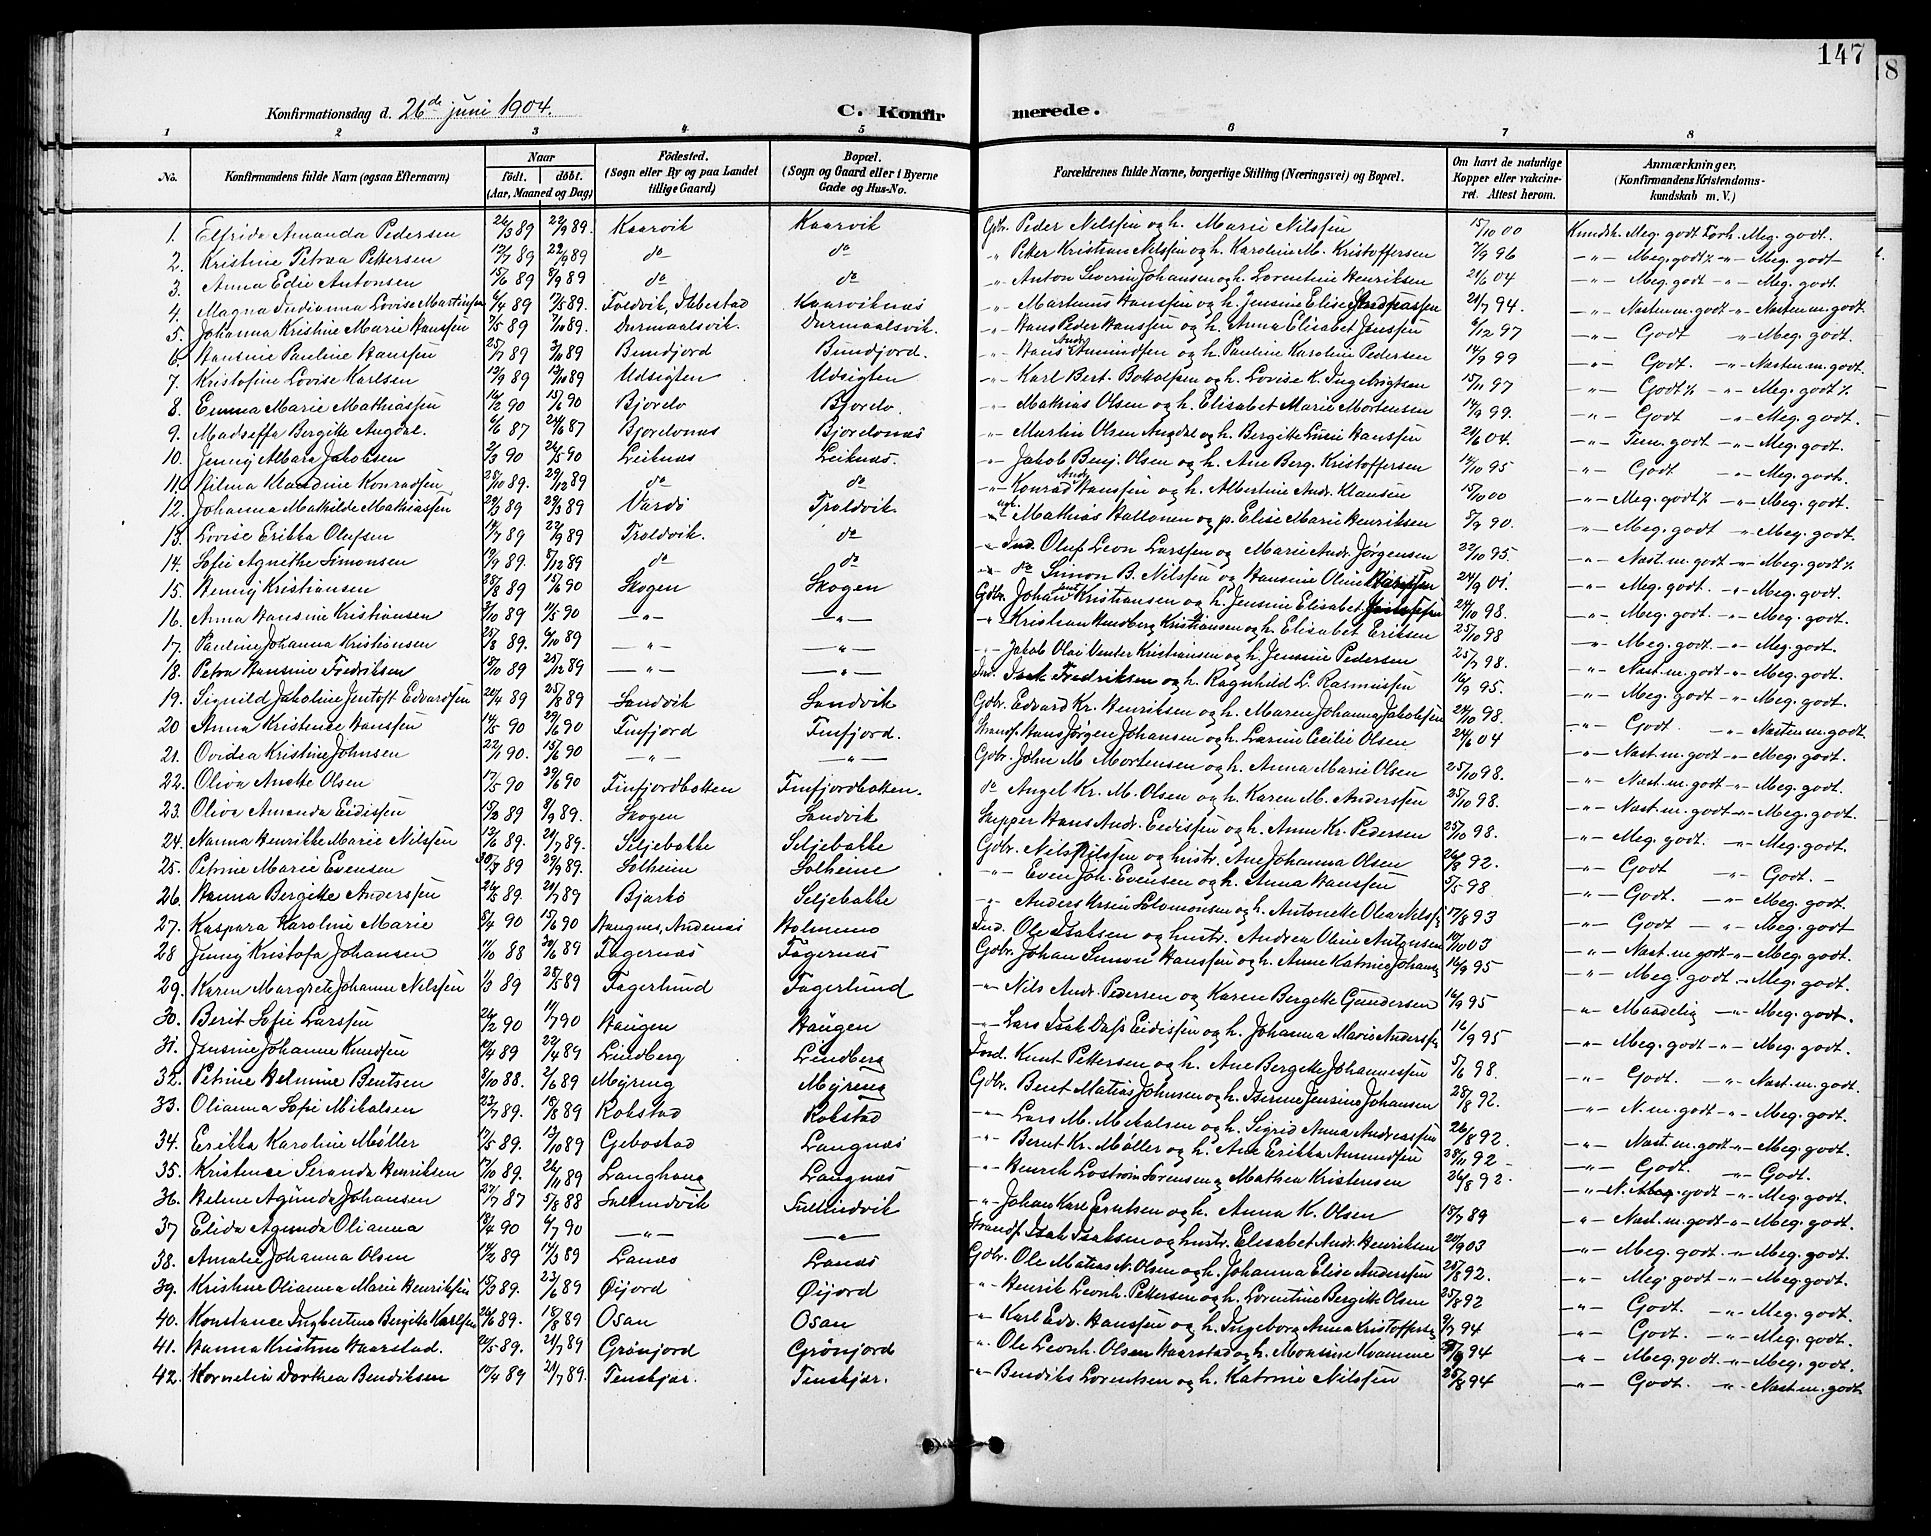 147
8
Konfirmationsdag d. 26de juni 1904.
C. Konfirmerede.
1 2 3 4 5 6 7 8
No. Konfirmandens fulde Navn (ogsaa Efternavn) Naar født. døbt. (Aar, Maaned og Dag) Fødested. (Sogn eller By og paa Landet tillige Gaard) Bopæl. (Sogn og Gaard eller i Byerne Gade og Hus-No. Forældrenes fulde Navne, borgerlige Stilling (Næringsvei) og Bopæl. Om havt de naturlige Kopper eller vakcineret. Attest herom. Anmærkninger. (Konfirmandens Kristendomskundskab m. V.)
1. Elfrida Amanda Pedersen 89 22/9 89. Kaarvik Kaarvik Gdbr. Peder Nilssen og h. Marie Nilssen 15/10 00 Kundsk. Meg. godt Forh. Meg. godt.
2. Kristine Petrea Pettersen 12/7 89 22/9 89 do do " Petter Kristian Nilssen og h. Karoline M. Kristoffersen 7/9 96 -"- Meg. godt -"- Meg. godt
3. Anna Edie Antonsen 15/6 89 8/9 89 do do " Anton Severin Johansen og h. Lorentine Henriksen 21/6 04 -"- Meg. godt -"- Meg. godt.
4. Magna Indianna Lovise Martinsen 6/4 89 89. Foldvik, Ibbestad Kaarviknæs " Martinus Hanssen og h. Jensine Elise 21/7 94. -"- Næsten m. godt -"- Næsten m. godt.
5. Johanna Kristine Marie Hanssen 7/5 89 7/10 89. Durmaalsvik. Durmaalsvik. " Hans Peder Hanssen og h. Anna Elisabet Jenssen 6/12 97 -"- Godt -"- Meg. godt.
6. Hansine Pauline Hanssen 25/7 89 3/10 89 Bundjord Bundjord. " Hans Andr. Amundsen og h. Pauline Karoline Pedersen 14/9 99 -"- Godt. -"- Næsten m. godt.
7. Kristofine Lovise Karlsen 12/9 89 13/10 89 Udsigten Udsigten -"- Karl Bert. og h. Lovise K. Ingebrigtsen 15/11 97 -"- Godt -"- Meg. godt
8. Emma Marie Mathiassen 16/2 90 15/6 90 Bjorelv Bjorelv. -"- Mathias Olsen og h. Elisabet Marie Mortensen 14/9 99. -"- Godt -"- Meg. godt.
9. Madseffa Bergitte Angdal. 6/6 87 24/6 87 Bjorelvnæs Bjorelvnæs -"- Martin Olsen Angdal og h. Bergitte Hanssen 21/6 04. -"- Tem. godt -"- Meg. godt.
10. Jenny Albara Jakobsen 2/3 90 26/5 90 Leiknæs Leiknæs. -"- Jakob Benj. Olsen og h. Ane Berg. Kristoffersen 14/10 95 -"- Godt -"- Meg. godt.
11. Hilma Klaudine Konradsen 28/10 89. 29/12 89 do do -"- Konrad Andr. Hanssen og h. Albertine Andr. Klausen 15/10 00 -"- Meg. godt -"- Meg. godt.
12. Johanna Mathilde Mathiassen 22/3 89 29/3 89 Vardø Troldvik. -"- ugk. Mathias Hallonen og p. Elise Marie Henriksen 5/9 90. -"- Meg. godt -"- Meg. godt.
13. Lovise Erikka Olufsen 14/7 89 22/9 89 Troldvik. do Ind. Oluf Leon Larssen og Marie Andr. Jørgensen 22/10 95. -"- Nast. m. godt -"- Meg. godt
14. Sofie Agnethe Simonsen 12/9 89. 8/12 89 do do do Simon B. Nilssen og Hansine Oline 24/9 01. -"- Meg. godt. -"- Meg. godt.
15. Henny Kristiansen 28/8 89 15/6 90 Skogen Skogen Gdbr. Johan Kristiansen og h. Jensine Elisabet 24/10 98. -"- Meg. godt. -"- Meg. godt.
16. Anna Hansine Kristiansen 3/10 89 11/5 90 -"- -"- " Kristian Kristiansen og h. Elisabet Eriksen 25/10 98 -"- Meg. godt -"- Meg. godt.
17. Pauline Johanna Kristiansen 25/8 89. 6/10 89 -"- -"- -"- Jakob Olai Kristiansen og h. Jensine Pedersen 25/7 98. -"- Nast. m. godt -"- Meg. godt.
18. Petra Hansine Fredriksen 15/10 89 25/12 89 -"- -"- Ind. Isak Fredriksen og h. Ragnhild L. Rasmussen 16/9 95. -"- Meg. godt -"- Meg. godt.
19. Signild Jakoline Jentoft Edvardsen 20/4 89 25/8 89 Sandvik Sandvik Gdbr. Edvard Kr. Henriksen og h. Maren Johanna Jakobsen 24/10 98. -"- Godt -"- Næsten m. godt
20 Anna Kristence Hanssen 14/5 90 29/6 90 Finfjord Finfjord. Strandf. Hans Jørgen Johansen og h. Larine Cecilie Olsen 24/6 04 -"- Nast. m. godt -"- Meg. godt.
21. Ovidia Kristine Johnsen 22/1 90. 15/6 90 -"- -"- Gdbr. John M. Mortensen og h. Anna Marie Olsen 25/10 98. -"- Nast. m. godt -"- Meg. godt.
22. Oliva Anette Olsen 17/5 90 29/6 90 Finfjordbotten Finfjordbotten. do Angel Kr. M. Olsen og h. Karen M. Anderssen 25/10 98. -"- Nast. m. godt -"- Meg. godt.
23. Oliva Amanda Eidissen 15/2 89 8/9 89. Skogen Sandvik Skipper Hans Andr. Eidissen og h. Anne Kr. Pedersen 25/10 98. -"- Meg. godt. -"- Meg. godt.
24. Nanna Henrikke Marie Nilssen 12/6 89. 21/7 89. Seljebakke Seljebakke Gdbr. Nils Nilssen og hustr. Ane Johanna Olsen 26/8 92. -"- Godt -"- Godt. -
25. Petrine Marie Evensen 30/7 89 29/9 89. Solheim Solheim -"- Even Joh. Evensen og h. Anna Hanssen 5/5 98 -"- Godt. -"- Meg. godt.
26. Hanna Bergitte Anderssen 26/5 89. 21/7 89 Bjarkø Seljebakke " Anders Solomonsen og h. Antonette Olea Nilss. 17/8 93 -"- Godt -"- Meg. godt
27. Kaspara Karoline Marie 8/4 90 15/6 90 Haugnes, Andenæs Holmemo Ind. Ole Isaksen og hustr. Andrea Oline Antonsen 10/10 03 -"- Nast. m. godt -"- Meg. godt.
28 Jenny Kristofa Johansen 11/10 88 30/6 89 Fagernæs Fagernæs Gdbr. Johan Simon Hanssen og h. Anne Katrine Johans. 16/9 95 -"- Meg. godt. -"- Meg. godt.
29. Karen Margrete Johanne Nilssen 1/3 89 28/5 89 Fagerlund Fagerlund -"- Nils Andr. Pedersen og Karen Bergitte Gundersen 16/9 95 -"- Maadelig -"- Meg. godt.
30. Berit Sofie Larssen 26/2 90 11/7 90 Haugen Haugen -"- Lars Isak Eidissen og h. Johanna Marie Anderss. 16/9 95 -"- Meg. godt -"- Meg. godt.
31. Jensine Johanne Knudsen 12/4 89 22/4 89 Lindberg Lindberg Ind. Knut Pettersen og h. Ane Bergitte Johannessen 5/6 98. -"- Godt. -"- Nast. m. godt.
32. Petrine Helmine Bentsen 8/10 88. 2/6 89 Myreng Myreng Gdbr. Bent Matias Johnsen og h. Iserine Jensine Johansen 28/8 92. -"- N. m. godt -"- Meg. godt.
33. Olianna Sofie Mikalsen 23/7 89. 18/8 89 Rokstad Rokstad -"- Lars M. Mikalsen og h. Sigrid Anna Andreassen 26/8 92. -"- Nast. m. godt -"- Meg. godt.
34. Erikka Karoline Møller 17/5 89. 13/10 89 Gebostad Langnæs -"- Bernt Kr. Møller og h. Ane Erikka Amundsen 28/11 92 -"- Godt. -"- Godt.
35. Kristence Seranda Henriksen 17/10 89. 26/11 89 Langhaug Langnæs -"- Henrik Sørensen og Mathea Kristensen 26/8 92. -"- N. m. godt -"- Meg. godt.
36. Helene Agunda Johansen 27/7 87 5/8 88 Sultindvik Sultindvik -"- Johan Karl Erntsen og h. Anna K. Olsen 15/7 89 -"- Nast. m. godt. -"- Meg. godt.
37 Elida Agunda Olianna 13/4 90 6/7 90 -"- -"- Strandf. Isak Isaksen og hustr. Elisabet Andr. Henriksen 20/9 03 -"- Meg. godt. -"- Meg. godt.
38. Amalie Johanna Olsen 14/2 89 14/3 89 Lanæs Lanæs Gdbr. Ole Matias N. Olsen og h. Johanna Elise Anderssen 25/8 92. -"- Meg. godt -"- Meg. godt.
39. Kristine Olianna Marie Henriksen 15/3 89. 23/6 89 Øijord Øijord -"- Henrik Leonh. Pettersen og h. Lorentine Bergitte Olsen 25/8 92 -"- Godt. -"- Meg. godt.
40. Konstance Ingbertine Bergitte Karlsen 26/6 89. 18/8 89 Osan Osan " Karl Edv. Hanssen og h. Ingeborg Anna Kristoffers. 9/7 94 -"- Godt. -"- Meg. godt.
41. Hanna Kristine Haarstad. 20/5 89. 21/7 89 Grønjord Grønjord " Ole Leonh. Olsen Haarstad og h. Monsine Kvamme 94 -"- Meg. godt -"- Meg. godt.
42. Kornelie Dorthea Bendiksen 10/4 89 21/7 89. Tenskjær. Tenskjær. -"- Bendiks Lorentsen og h. Katrine Nilssen 25/8 94 -"- Godt. -"- Nast. m. godt.